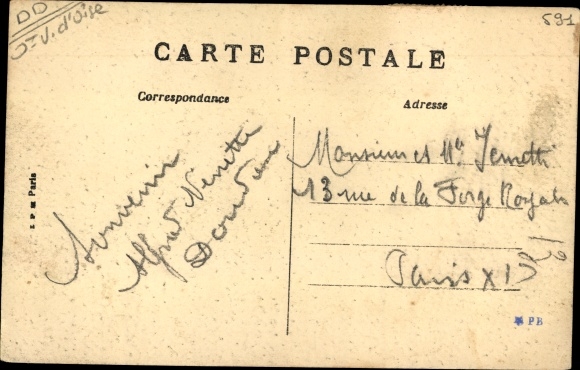 DD
J-V. d'oise
591
CARTE POSTALE
Correspondance
Adresse
Souvenir
Alfred Nenette
Monsieur et Mme
13 rue de la Forge Royale
Paris XI
I P M Paris
PB